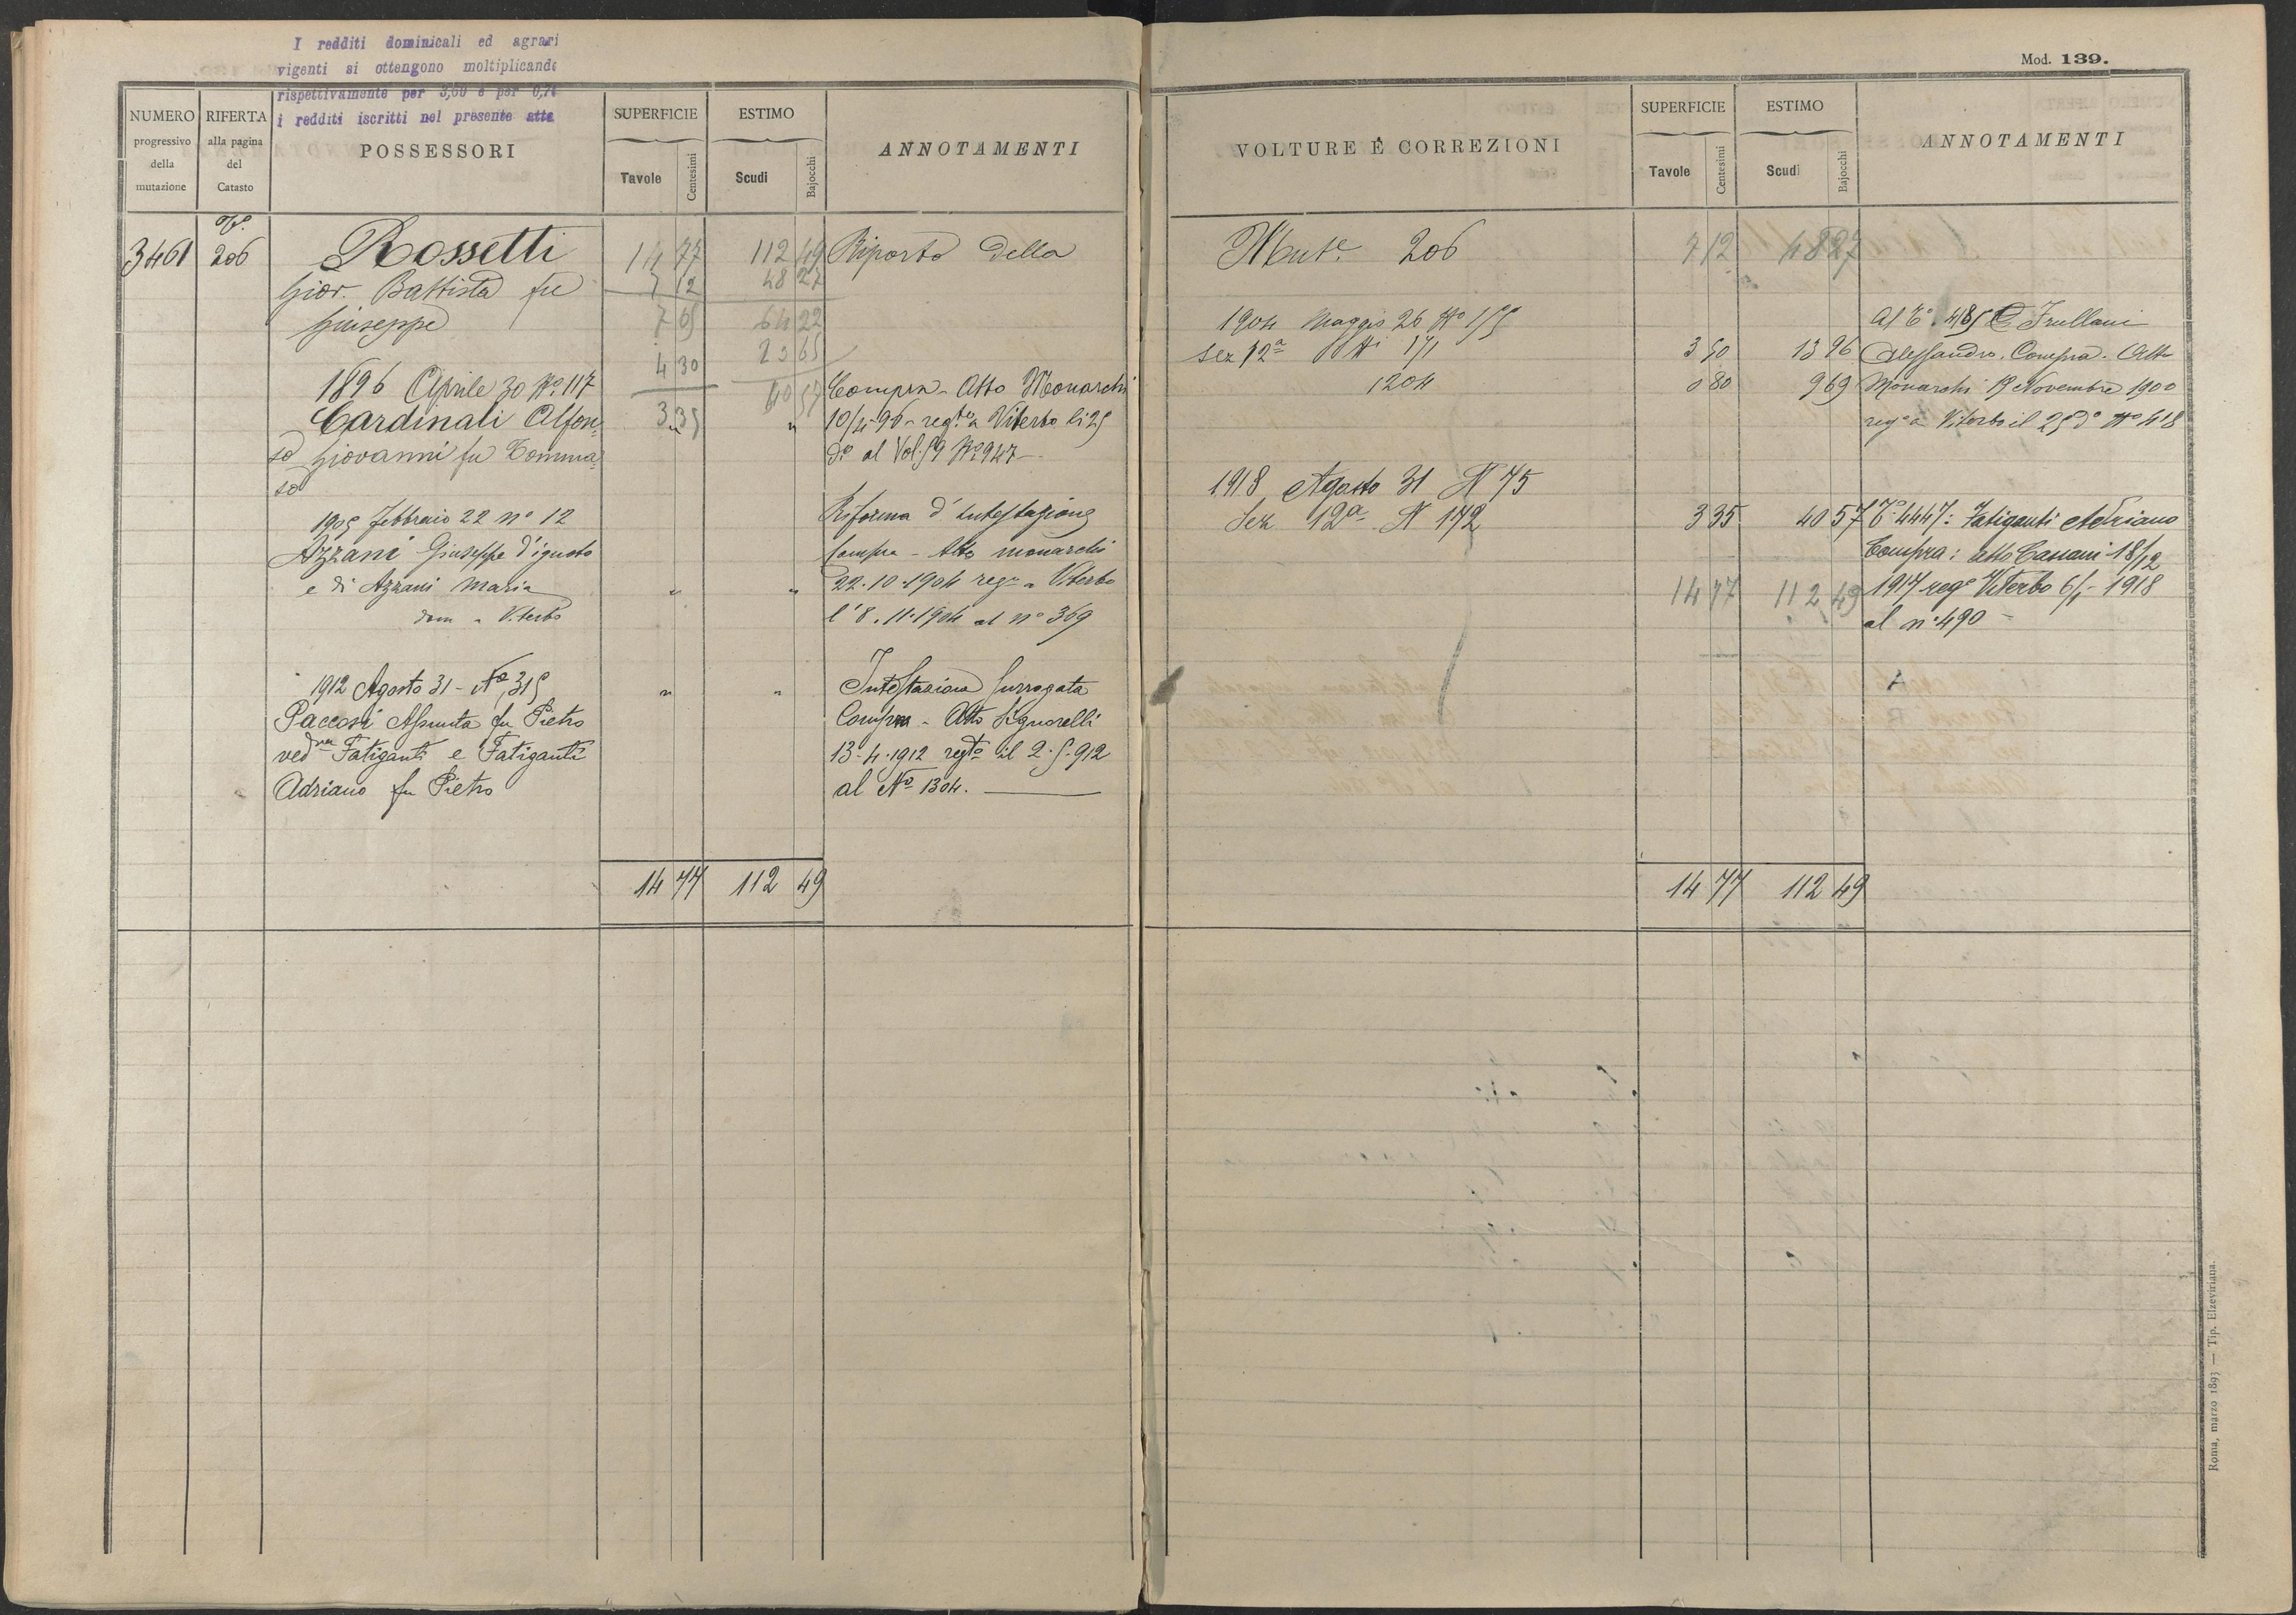 I redditi dominicali ed agrari
vigenti si ottengono moltiplicando
rispettivamente per 3,60 e per 0,7
i redditi iscritti nel presente atto
NUMERO
progressivo
della
mutazione
RIFERTA
alla pagina
del
Catasto
POSSESSORI
SUPERFICIE
Tavole
Centesimi
ESTIMO
Scudi
Bajocchi
ANNOTAMENTI
3461 206 Rossetti 14 77 112 49 Riporto della
Giov. Battista fu 7 12 48 27
Giuseppe 7 65 64 22
4 30 23 65
1896 Aprile 30 No. 117 40 57 Compra - Atto Monarchi
Cardinali Alfon= 3 35 " 10/4 96 - regto a Viterbo li 25
so Giovanni fu Tomma= do al Vol. 59 No 947 -
so
1905 Febbraio 22 no 12 Riforma d'intestazione
Azzani Giuseppe d'ignoto Compra - Atto monarchi
e di Azzani Maria " " 22.10.1904 rego a Viterbo
dom a Viterbo l'8.11.1904 al no 369
1912 Agosto 31 - No 315 " " Intestazione surrogata
Paccosi Assunta fu Pietro Compra - Atto Signorelli
ved va Fatiganti e Fatiganti 13.4.1912 regto il 2.5.912
Adriano fu Pietro al No 1304.
14 77 112 49
Mod. 139.
VOLTURE E CORREZIONI
SUPERFICIE
Tavole
Centesimi
ESTIMO
Scudi
Bajocchi
ANNOTAMENTI
Mut.e 206 7 12 48 27
1904 Maggio 26 No 155 Al To. 485 Frullani
Sez 12a Ni 171 3 50 13 96 Alessandro. Compra. Atto
1204 0 80 9 69 Monarchi 19 Novembre 1900
rego a Viterbo il 25 do No 418
1918 Agosto 31 N 75
Sez 12a N 172 3 35 40 57 To 4447: Fatiganti Adriano
Compra: atto Cassani 18/12
14 77 112 49 1917 rego Viterbo 6/1 - 1918
al no 490 -
14 77 112 49
Roma, marzo 1893 — Tip. Elzeviriana.